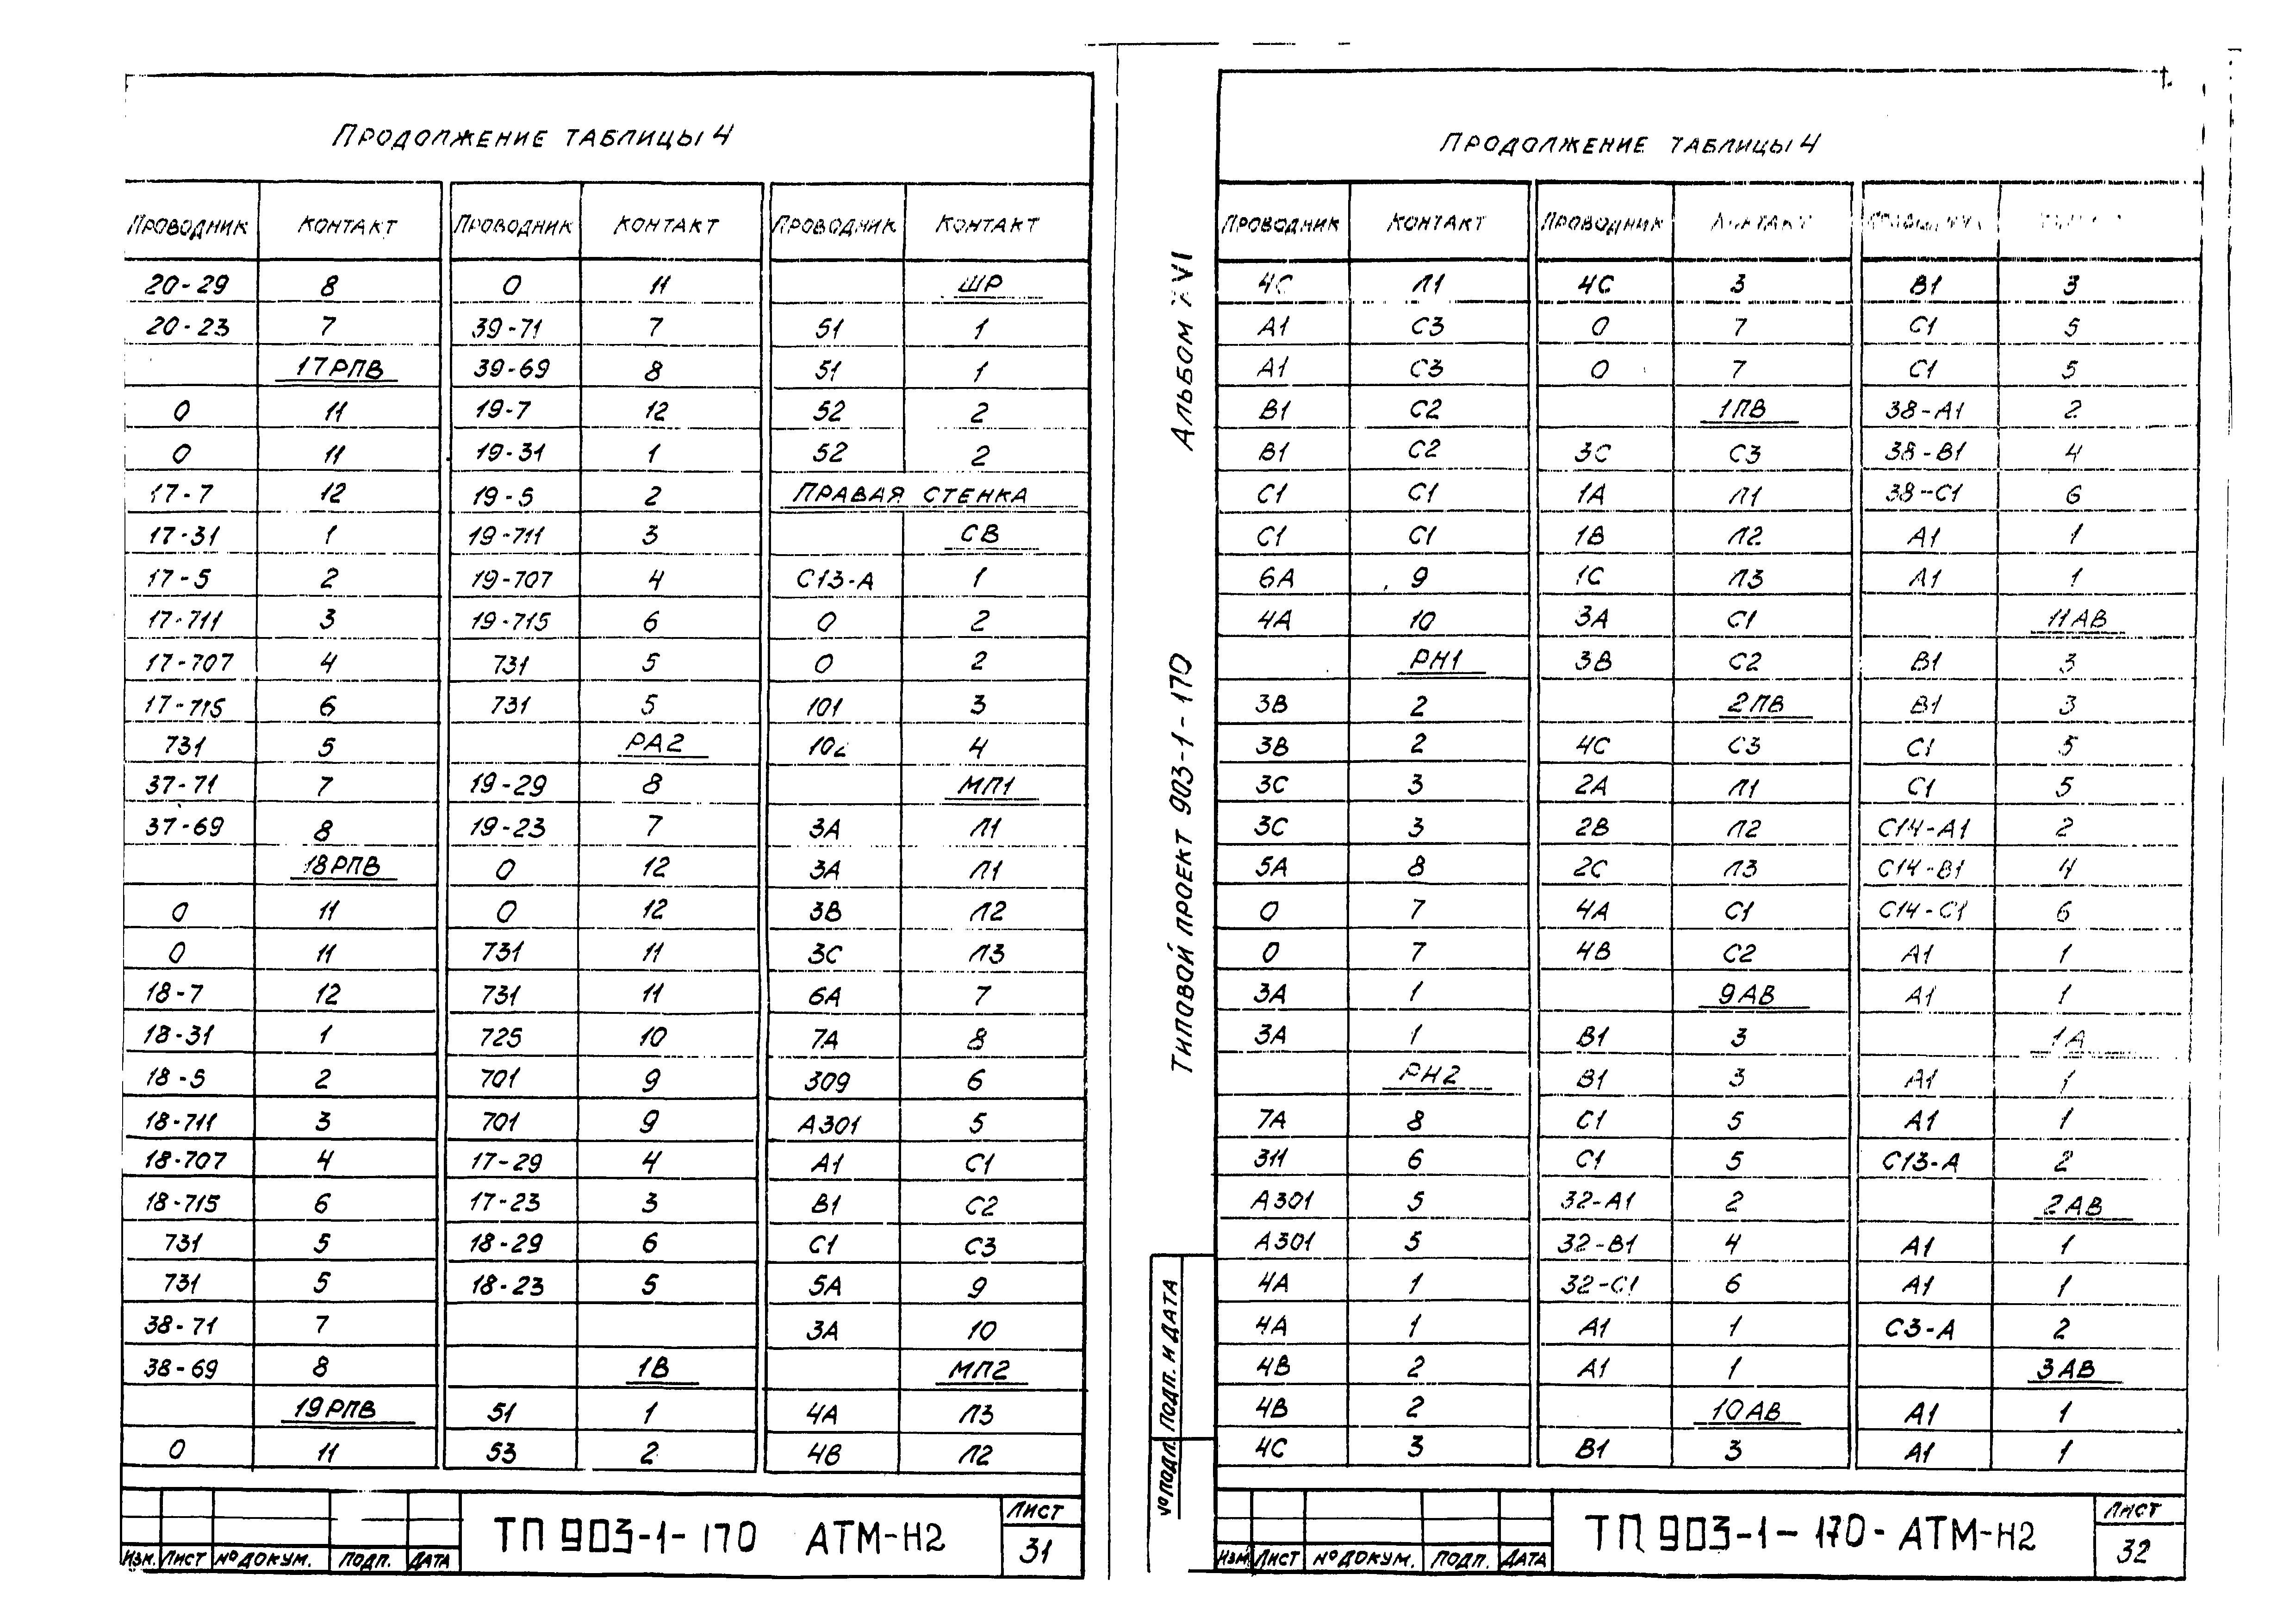 Продолжение таблицы 4
Проводник Контакт Проводник Контакт Проводник Контакт
20-29 8 0 11 ШР
20-23 7 39-71 7 51 1
17РПВ 39-69 8 51 1
0 11 19-7 12 52 2
0 11 19-31 1 52 2
17-7 12 19-5 2 Правая стенка
17-31 1 19-711 3 СВ
17-5 2 19-707 4 С13-А 1
17-711 3 19-715 6 0 2
17-707 4 731 5 0 2
17-715 6 731 5 101 3
731 5 РА2 102 4
37-71 7 19-29 8 МП1
37-69 8 19-23 7 3А Л1
18РПВ 0 12 3А Л1
0 11 0 12 3В Л2
0 11 731 11 3С Л3
18-7 12 731 11 6А 7
18-31 1 725 10 7А 8
18-5 2 701 9 309 6
18-711 3 701 9 А301 5
18-707 4 17-29 4 А1 С1
18-715 6 17-23 3 В1 С2
731 5 18-29 6 С1 С3
731 5 18-23 5 5А 9
38-71 7 3А 10
38-69 8 1В МП2
19РПВ 51 1 4А Л3
0 11 53 2 4В Л2
ТП 903-1-170 АТМ-Н2
Лист
31
Изм. Лист № докум. Подп. Дата
Альбом XVI
Типовой проект 903-1-170
Подп. и дата
№ подл.
Продолжение таблицы 4
Проводник Контакт Проводник Контакт
4С Л1 4С 3 В1 3
А1 С3 0 7 С1 5
А1 С3 0 7 С1 5
В1 С2 1ПВ 38-А1 2
В1 С2 3С С3 38-В1 4
С1 С1 1А Л1 38-С1 6
С1 С1 1В Л2 А1 1
6А 9 1С Л3 А1 1
4А 10 3А С1 11АВ
РН1 3В С2 В1 3
3В 2 2ПВ В1 3
3В 2 4С С3 С1 5
3С 3 2А Л1 С1 5
3С 3 2В Л2 С14-А1 2
5А 8 2С Л3 С14-В1 4
0 7 4А С1 С14-С1 6
0 7 4В С2 А1 1
3А 1 9АВ А1 1
3А 1 В1 3 1А
РН2 В1 3 А1 1
7А 8 С1 5 А1 1
311 6 С1 5 С13-А 2
А301 5 32-А1 2 2АВ
А301 5 32-В1 4 А1 1
4А 1 32-С1 6 А1 1
4А 1 А1 1 С3-А 2
4В 2 А1 1 3АВ
4В 2 10АВ А1 1
4С 3 В1 3 А1 1
ТП 903-1-170-АТМ-Н2
Лист
32
Изм. Лист № докум. Подп. Дата